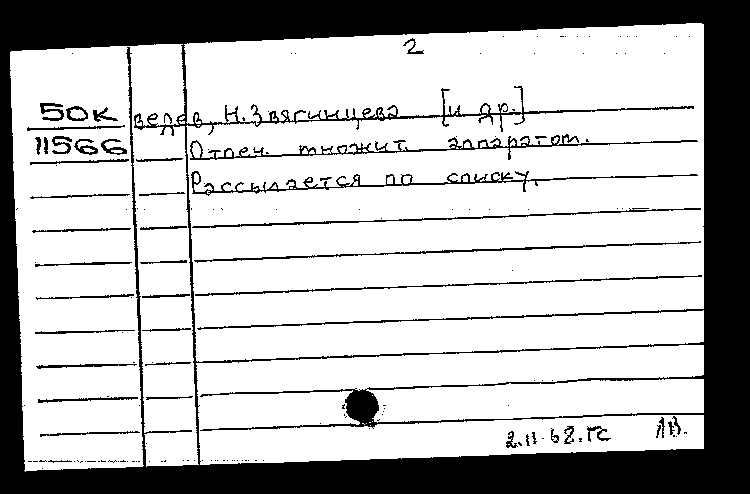 2
50К ведев, Н. Звягинцева [и др.]
11566 Отпеч. множит. аппаратом.
Рассылается по списку.
2.11.68.ГС ЛВ.